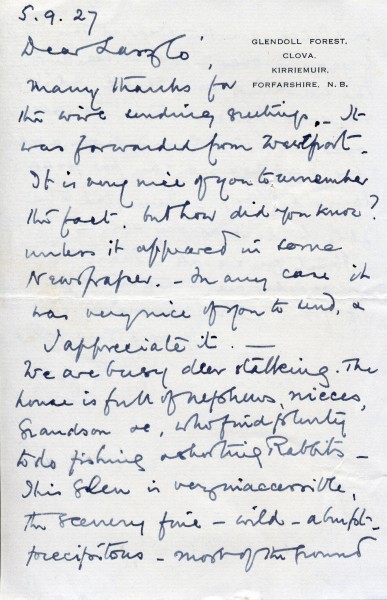 5.9.27
GLENDOLL FOREST,
CLOVA,
KIRRIEMUIR,
FORFARSHIRE, N. B.
Dear Laszlo',
Many thanks for
the wire sending greetings. - It
was forwarded from Westport -
It is very nice of you to remember
the fact, but how did you know?
unless it appeared in some
Newspaper. - In any case it
was very nice of you to send, &
I appreciate it. -
We are busy deer stalking. The
house is full of nephews, nieces,
Grandson &c, who find plenty
to do fishing & shooting Rabbits -
This Glen is very inaccessible,
the scenery fine - wild - abrupt -
precipitous - most of the ground